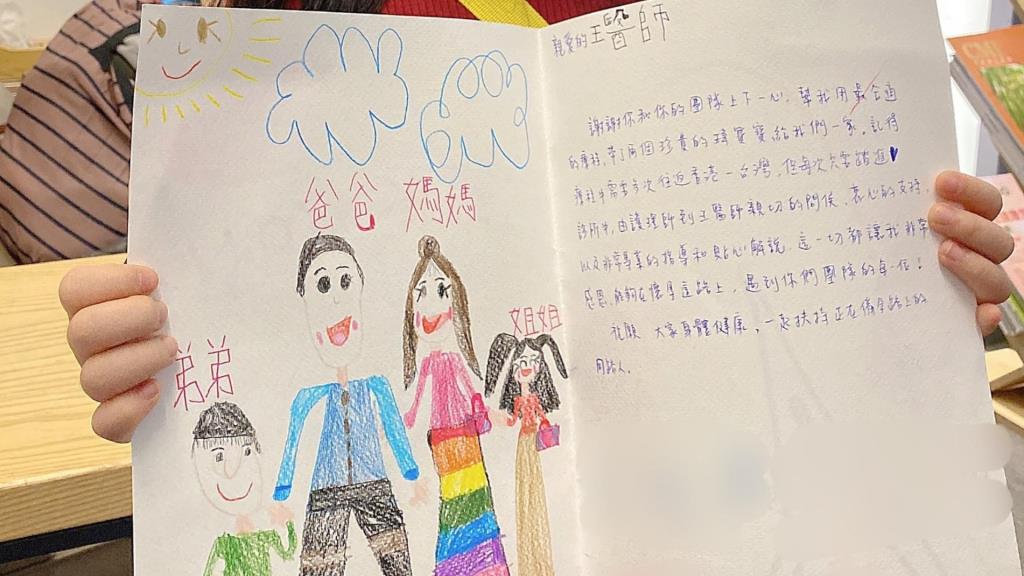 爸爸 媽媽
姐姐
弟弟
親愛的王醫師
謝謝你和你的團隊上下一心,幫我用最合適
的療程,帶了兩個珍貴的球寶寶給我們一家,記得
療程中需要多次往返香港-台灣,但每次只要踏進
診所中,由護理師到王醫師親切的關係、衷心的支持,
以及非常專業的指導和貼心解說,這一切都讓我非常
感恩,能夠在懷孕這路上,遇到你們團隊的每一位!
祝願 大家身體健康,一起扶持正在備孕路上的
同路人。